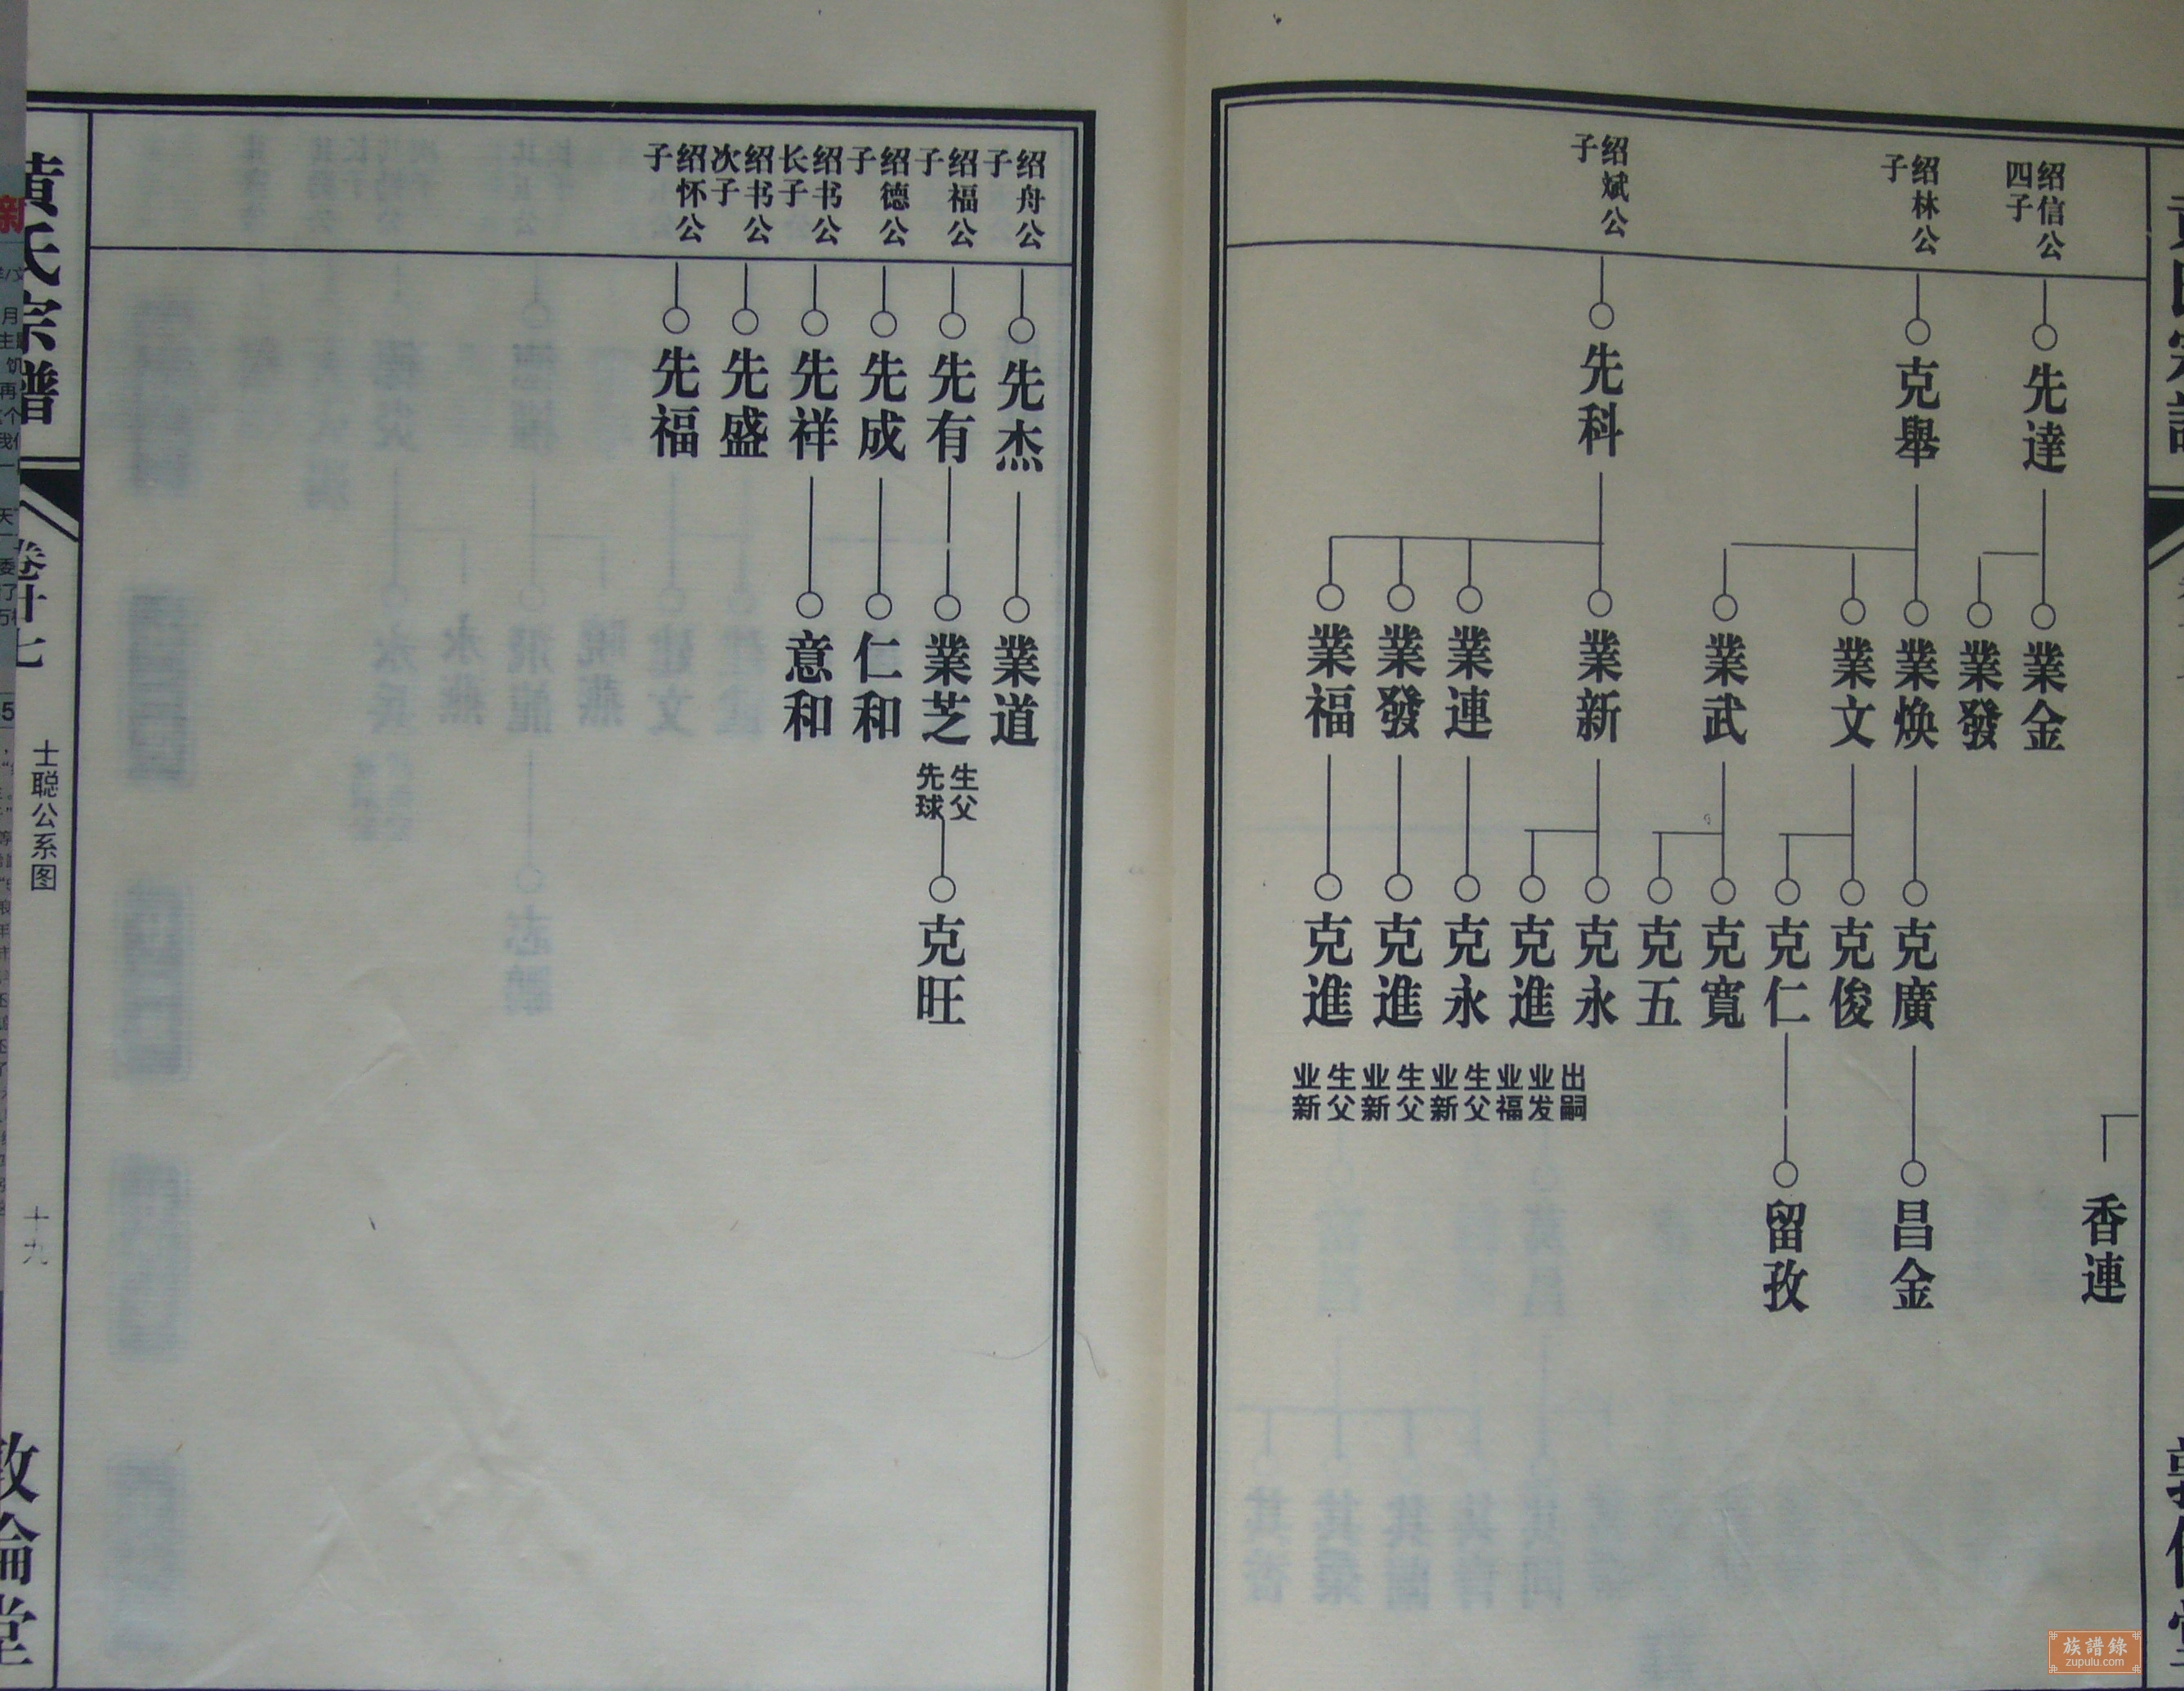 绍信公
四子
先達
業金
業發
香連
绍林公
子
克舉
業焕
業文
業武
克廣
克俊
克仁
克寬
克五
昌金
留孜
绍斌公
子
先科
業新
業連
業發
業福
克永
克進
出嗣
业发
业福
克永
生父
业新
克進
生父
业新
克進
生父
业新
绍舟公
子
先杰
業道
绍福公
子
先有
業芝
生父
先球
克旺
绍德公
子
先成
仁和
绍书公
长子
先祥
意和
绍书公
次子
先盛
绍怀公
子
先福
黄氏宗譜
卷十七
士聪公系图
十九
敦倫堂
族譜錄
zupulu.com